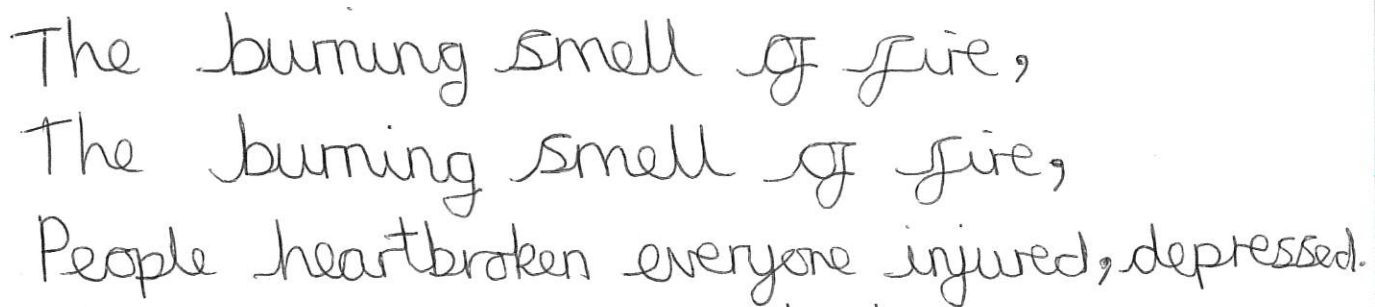 The burning smell of fire,
The burning smell of fire,
People heartbroken everyone injured, depressed.